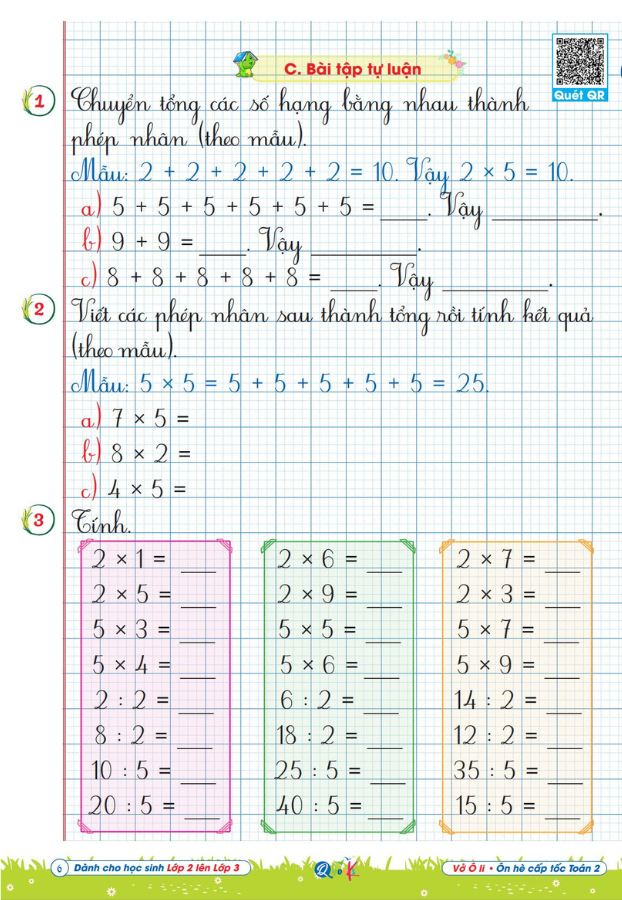 C. Bài tập tự luận
Quét QR
1 Chuyển tổng các số hạng bằng nhau thành
phép nhân (theo mẫu).
Mẫu: 2 + 2 + 2 + 2 + 2 = 10. Vậy 2 × 5 = 10.
a) 5 + 5 + 5 + 5 + 5 + 5 = ____. Vậy _________.
b) 9 + 9 = ____. Vậy _________.
c) 8 + 8 + 8 + 8 + 8 = ____. Vậy _________.
2 Viết các phép nhân sau thành tổng rồi tính kết quả
(theo mẫu).
Mẫu: 5 × 5 = 5 + 5 + 5 + 5 + 5 = 25.
a) 7 × 5 =
b) 8 × 2 =
c) 4 × 5 =
3 Tính.
2 × 1 = ___
2 × 5 = ___
5 × 3 = ___
5 × 4 = ___
2 : 2 = ___
8 : 2 = ___
10 : 5 = ___
20 : 5 = ___
2 × 6 = ___
2 × 9 = ___
5 × 5 = ___
5 × 6 = ___
6 : 2 = ___
18 : 2 = ___
25 : 5 = ___
40 : 5 = ___
2 × 7 = ___
2 × 3 = ___
5 × 7 = ___
5 × 9 = ___
14 : 2 = ___
12 : 2 = ___
35 : 5 = ___
15 : 5 = ___
6 Dành cho học sinh Lớp 2 lên Lớp 3
Vở Ô li • Ôn hè cấp tốc Toán 2